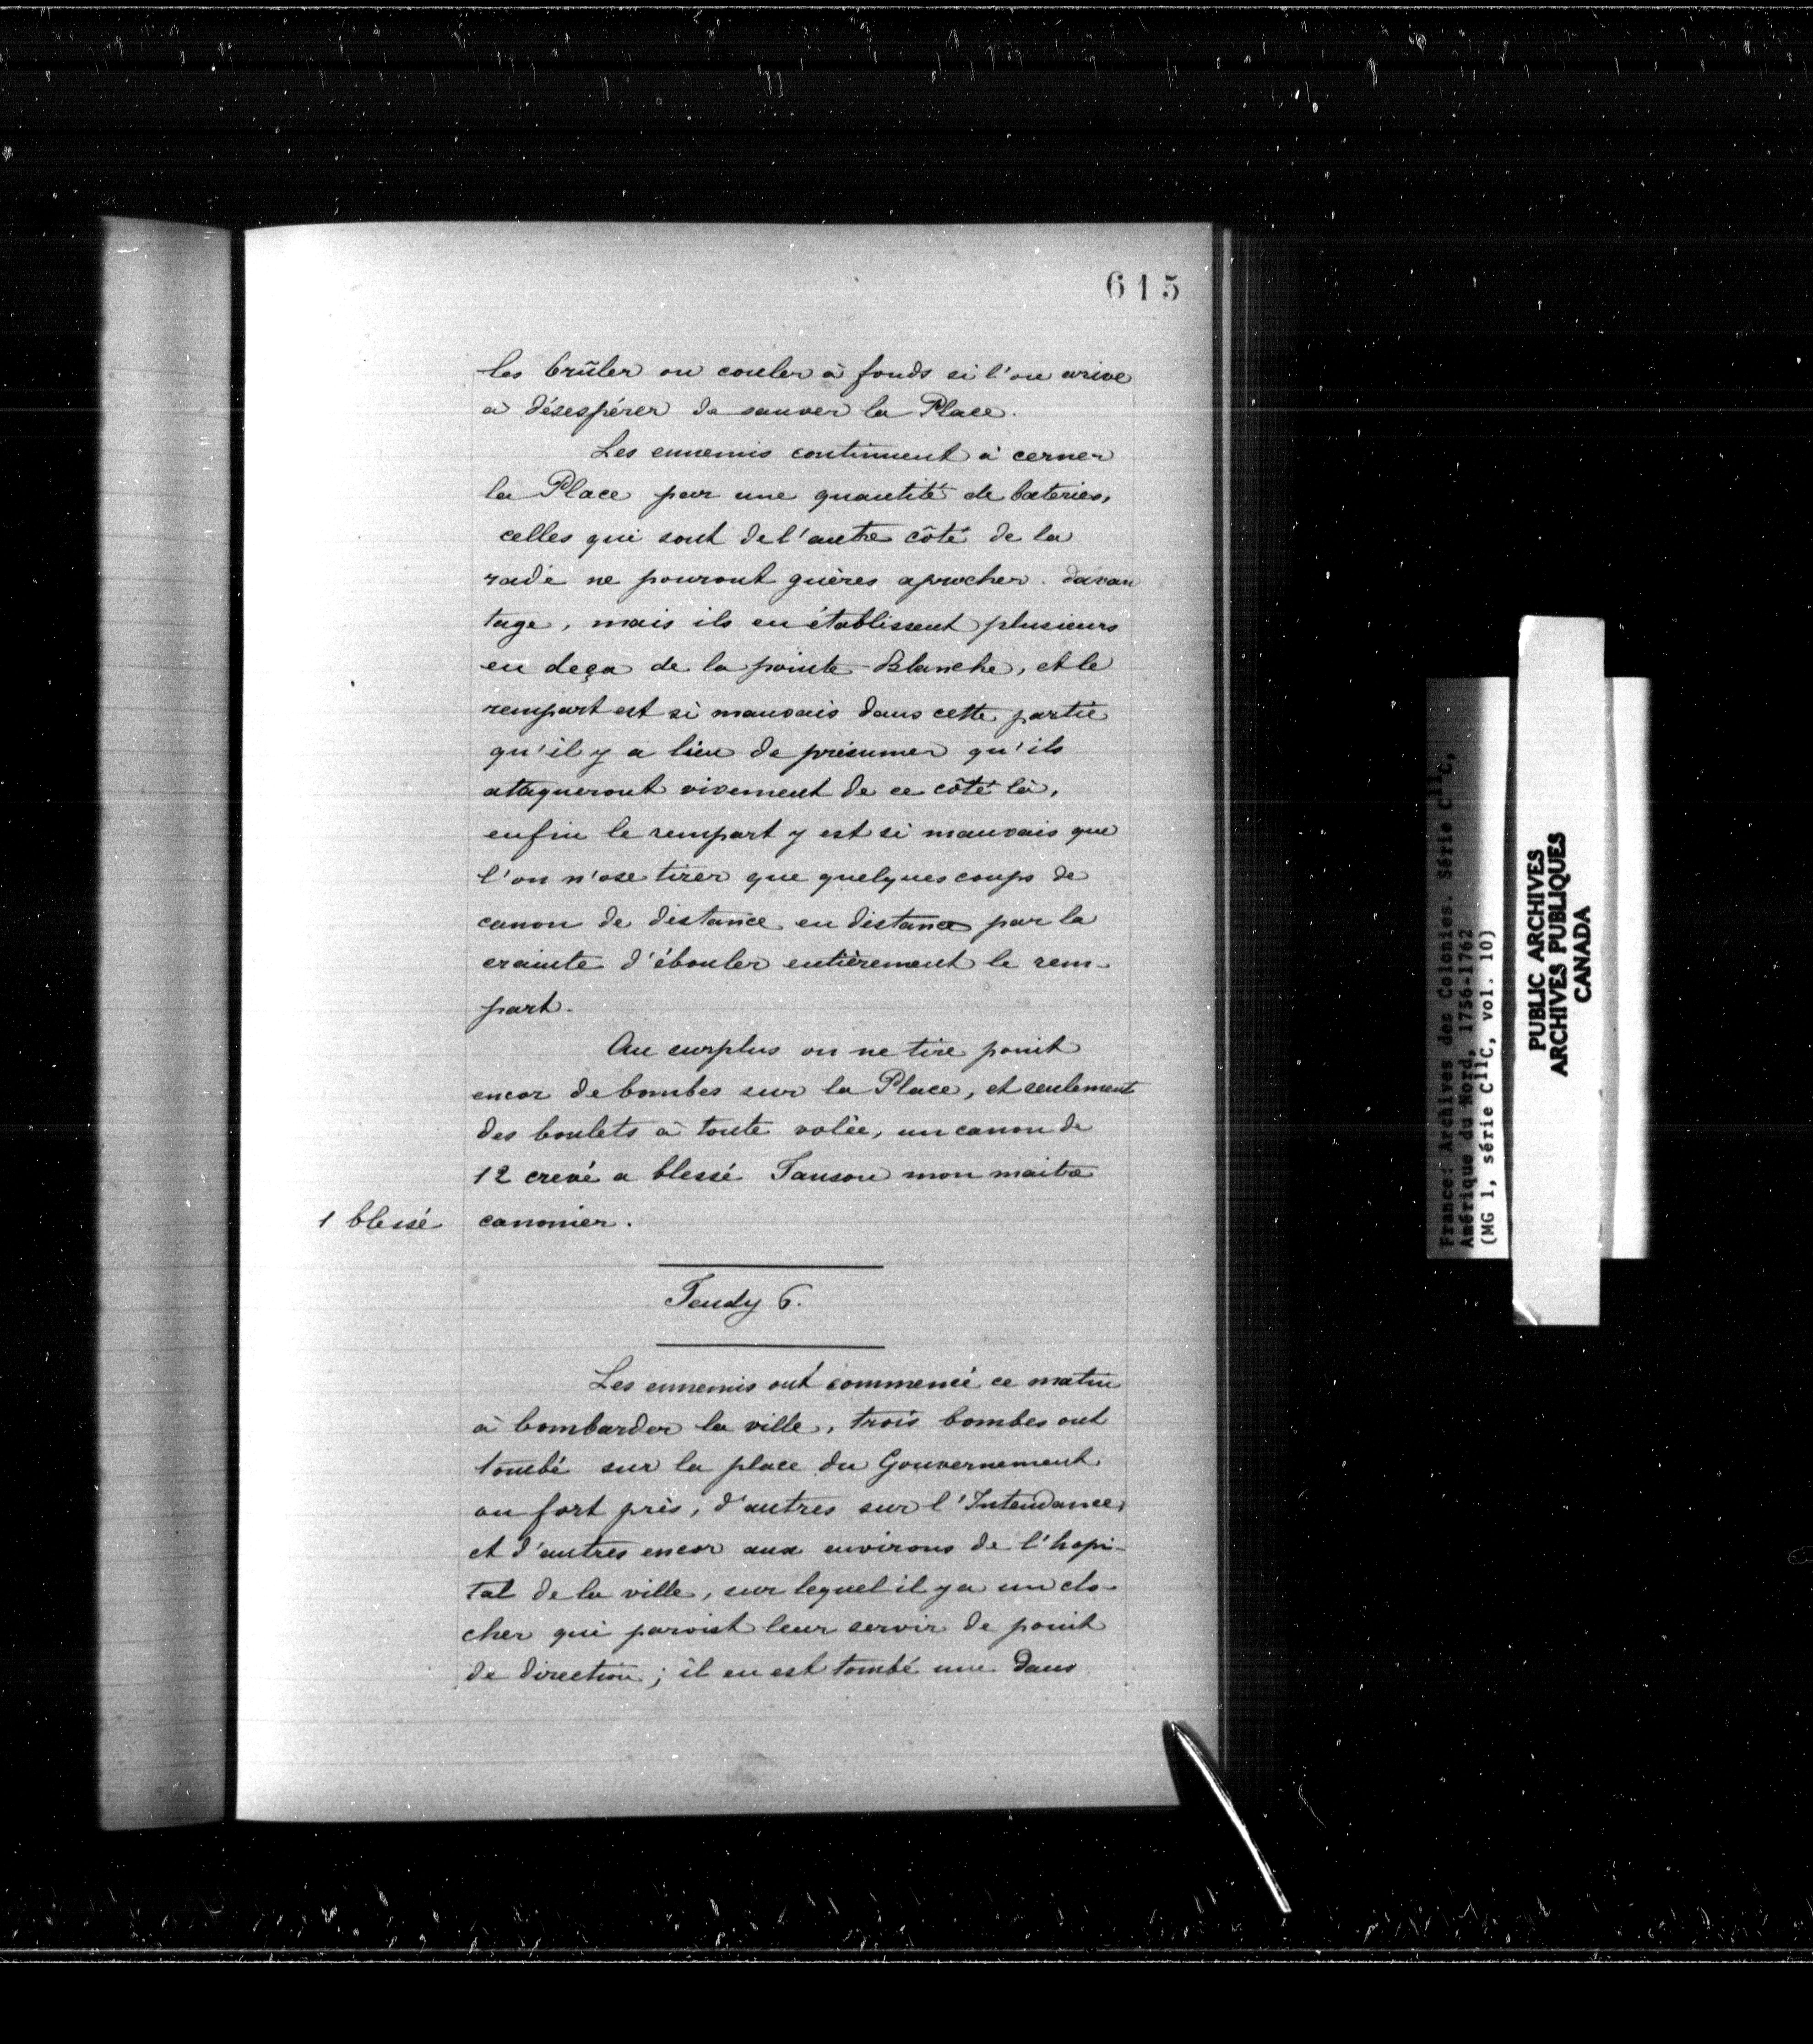 615
les brûler ou couler à fonds si l'on arive
a désespérer de sauver la Place.
Les ennemis continuent à cerner
la Place par une quantité de bateries,
celles qui sont de l'autre côté de la
rade ne pouront guères aprocher davan
tage, mais ils en établissent plusieurs
en deça de la pointe Blanche, et le
rempart est si mauvais dans cette partie
qu'il y a lieu de présumer qu'ils
ataqueront vivement de ce côté là,
enfin le rempart y est si mauvais que
l'on n'ose tirer que quelques coups de
canon de distance en distance par la
crainte d'ébouler entièrement le rem-
part.
Au surplus on ne tire point
encor de bombes sur la Place, et seulement
des boulets à toute volée, un canon de
12 crevé a blessé Janson mon maitre
1 blessé canonier.
Jeudy 6.
Les ennemis ont commencé ce matin
à bombarder la ville, trois bombes ont
tombé sur la place du Gouvernement
ou fort près, d'autres sur l'Intendance,
et d'autres encor aux environs de l'hopi-
tal de la ville, sur lequel il y a un clo-
cher qui paroist leur servir de point
de direction; il en est tombé une dans
France: Archives des Colonies. Série C11C,
Amérique du Nord, 1756-1762
(MG 1, série C11C, vol. 10)
PUBLIC ARCHIVES
ARCHIVES PUBLIQUES
CANADA